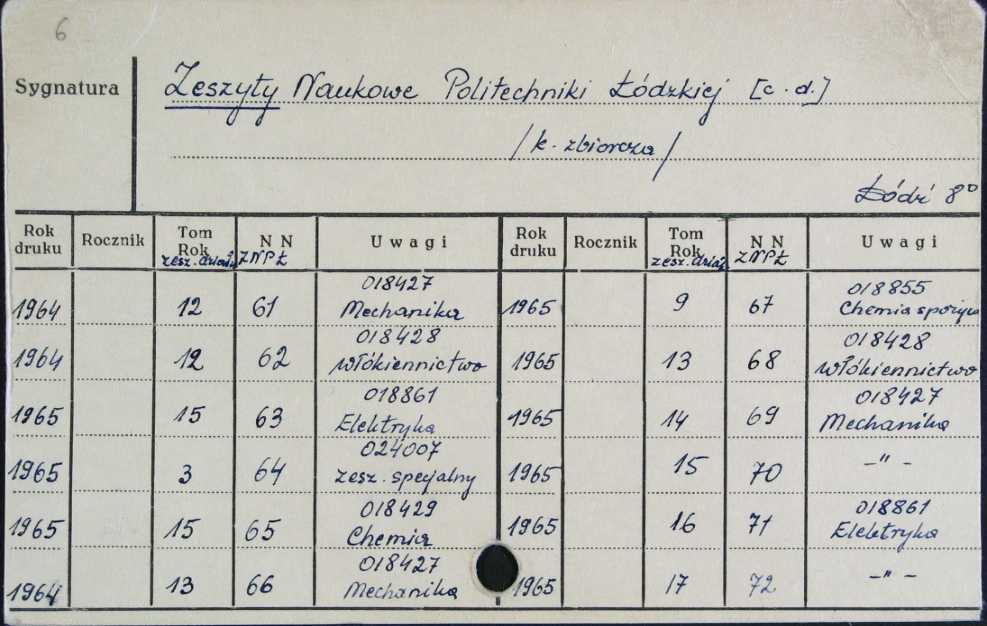 6
Sygnatura
Zeszyty Naukowe Politechniki Łódzkiej [c.d.]
/k. zbiorcza/
Łódź 8°
Rok druku Rocznik Tom Rok zesz. dział. N N ZNPŁ Uwagi Rok druku Rocznik Tom Rok zesz. dział. N N ZNPŁ Uwagi
1964 12 61 018427 Mechanika 1965 9 67 018855 Chemia spożyw
1964 12 62 018428 włókiennictwo 1965 13 68 018428 włókiennictwo
1965 15 63 018861 Elektryka 1965 14 69 018427 Mechanika
1965 3 64 024007 zesz. specjalny 1965 15 70 -"-
1965 15 65 018429 Chemia 1965 16 71 018861 Elektryka
1964 13 66 018427 Mechanika 1965 17 72 -"-